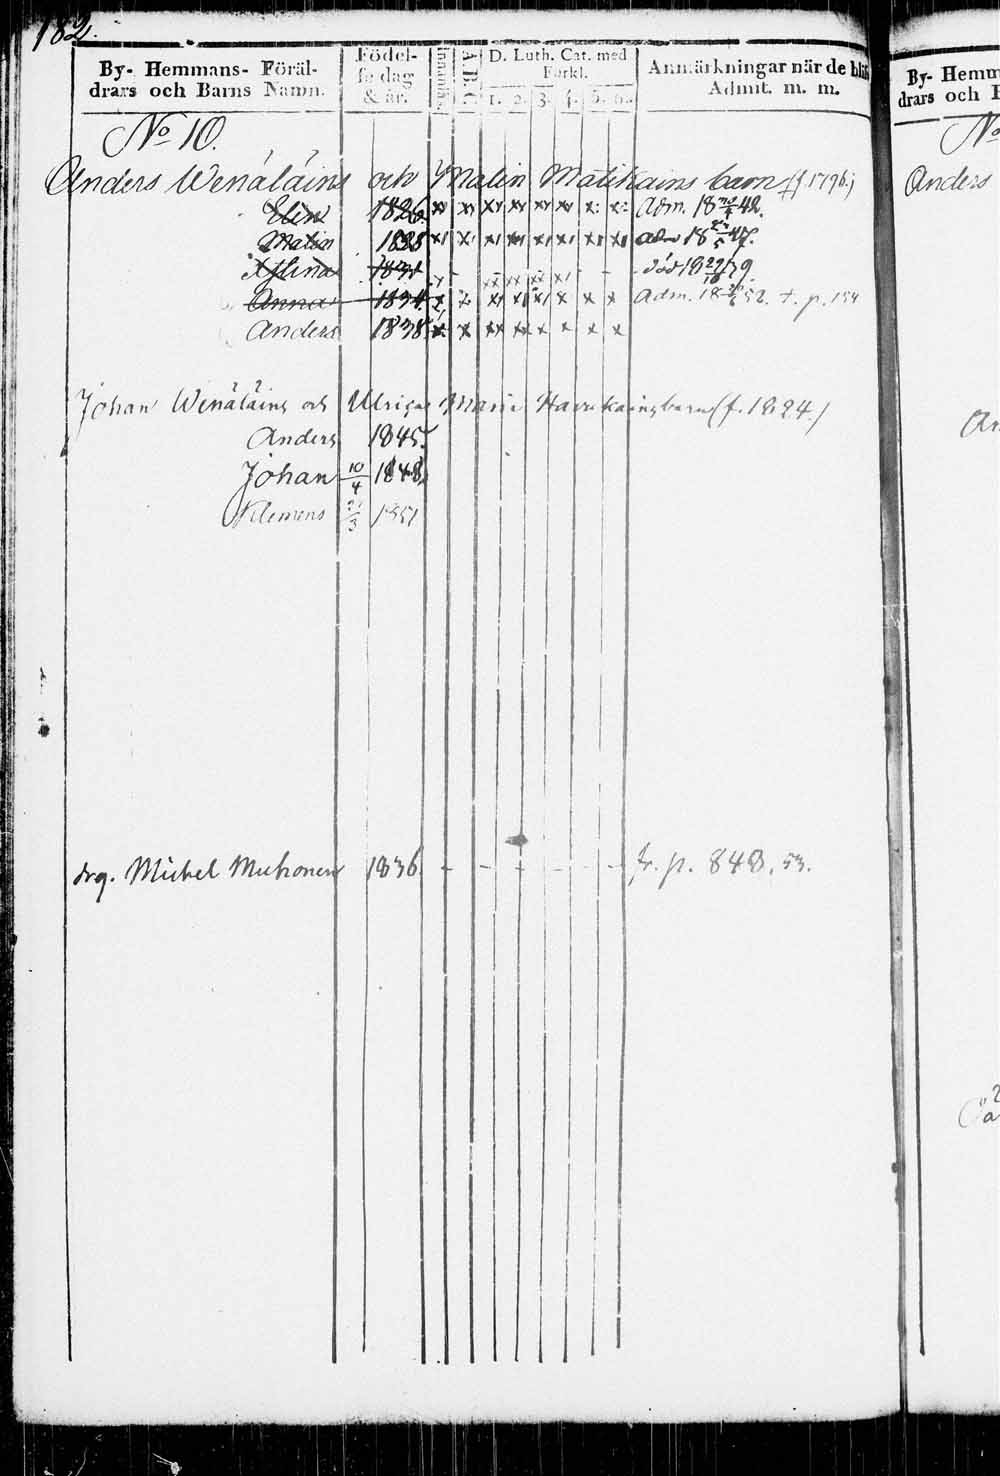 182.
By- Hemmans- Föräl-
drars och Barns Namn.
Födel-
se dag
& år.
Innanläs.
A B C
D. Luth. Cat. med
Förkl.
1. 2. 3. 4. 5. 6.
Anmärkningar när de blif
Admit. m. m.
No 10.
Anders Wenäläins och Malin Matikains barn (f. 1796.)
Elin 1826. Adm. 18 42.
Malin 1828 adm 18 47.
1831 död 18
Anna 1834. Adm. 18 52. t. p. 154
Anders 1838.
Johan Wenäläins och Ulrica Maria barn (f. 1824.)
Anders 1845.
Johan 10/4 1848.
Klemens 1851
drg. Michel Muhonen 1836. - - - - - - - fr. p. 848. 53.
By- Hemm
drars och B
No
Anders
An